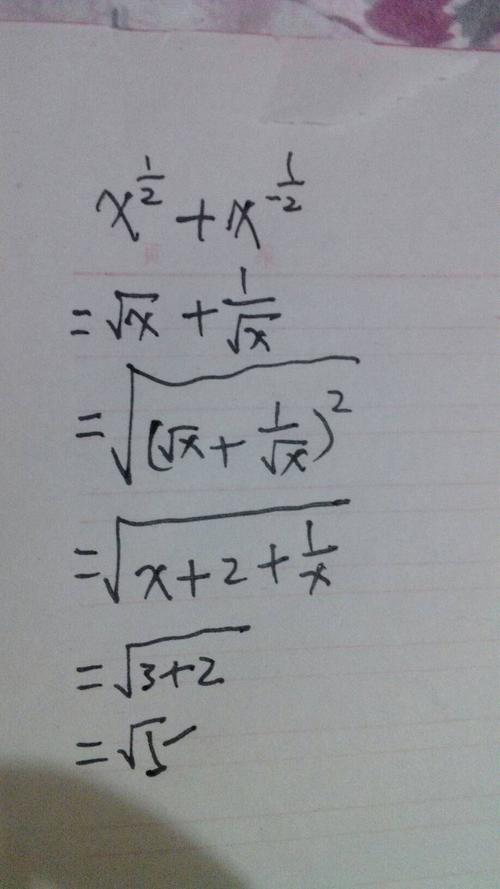 x^{\frac{1}{2}} + x^{-\frac{1}{2}}
= \sqrt{x} + \frac{1}{\sqrt{x}}
= \sqrt{(\sqrt{x} + \frac{1}{\sqrt{x}})^2}
= \sqrt{x + 2 + \frac{1}{x}}
= \sqrt{3 + 2}
= \sqrt{5}